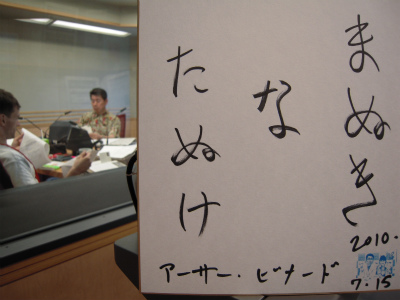 まぬき
な
たぬけ
アーサー・ビナード
2010.
7.15